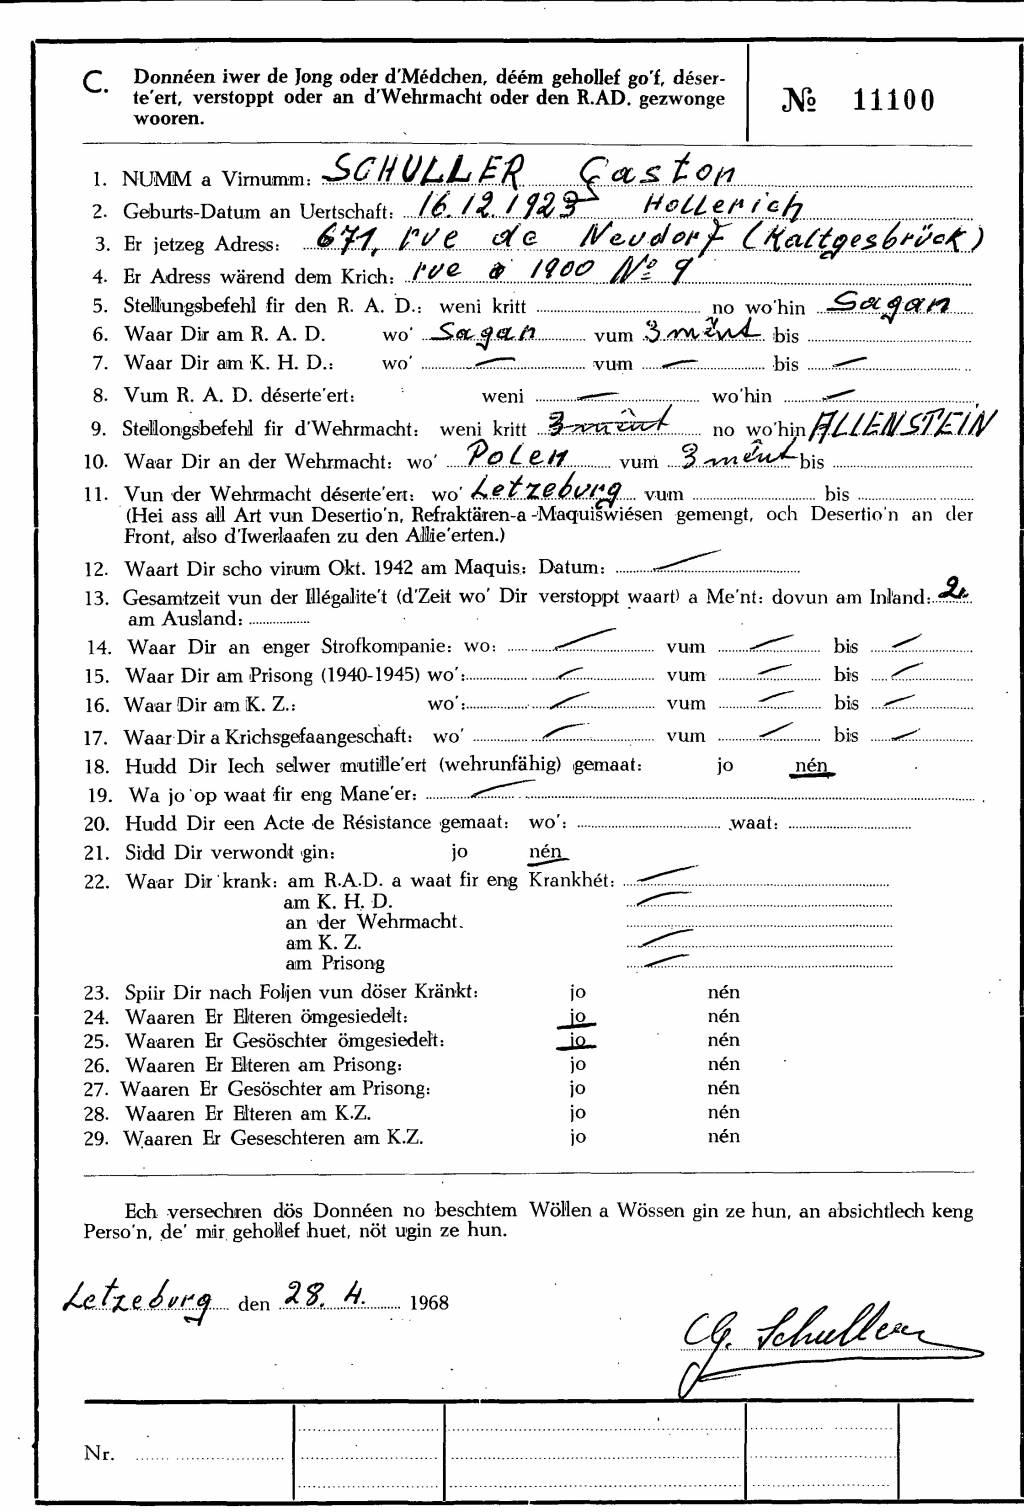 C. Donnéen iwer de Jong oder d'Médchen, déém gehollef go'f, déser-
te'ert, verstoppt oder an d'Wehrmacht oder den R.AD. gezwonge
wooren.
№ 11100
1. NUMM a Virnumm: SCHULLER Gaston
2. Geburts-Datum an Uertschaft: 16.12.1923 Hollerich
3. Er jetzeg Adress: 671, rue de Neudorf (Kaltgesbrück)
4. Er Adress wärend dem Krich: rue 1900 No 9
5. Stellungsbefehl fir den R. A. D.: weni kritt no wo'hin Sagan
6. Waar Dir am R. A. D. wo' Sagan vum 3 mënt bis
7. Waar Dir am K. H. D.: wo' — vum — bis —
8. Vum R. A. D. déserte'ert: weni — wo'hin —
9. Stellongsbefehl fir d'Wehrmacht: weni kritt 3 mënt no wo'hin ALLENSTEIN
10. Waar Dir an der Wehrmacht: wo' Polen vum 3 mênt bis
11. Vun der Wehrmacht déserte'ert: wo' Letzeburg vum bis
(Hei ass all Art vun Desertio'n, Refraktären-a -Maquiswiésen gemengt, och Desertio'n an der
Front, also d'Iwerlaafen zu den Allie'erten.)
12. Waart Dir scho virum Okt. 1942 am Maquis: Datum: —
13. Gesamtzeit vun der Illégalite't (d'Zeit wo' Dir verstoppt waart) a Me'nt: dovun am Inland: 2.
am Ausland:
14. Waar Dir an enger Strofkompanie: wo: — vum — bis —
15. Waar Dir am Prisong (1940-1945) wo': — vum — bis —
16. Waar Dir am K. Z.: wo': — vum — bis —
17. Waar Dir a Krichsgefaangeschaft: wo' — vum — bis —
18. Hudd Dir Iech selwer mutille'ert (wehrunfähig) gemaat: jo nén
19. Wa jo op waat fir eng Mane'er: —
20. Hudd Dir een Acte de Résistance gemaat: wo': waat:
21. Sidd Dir verwondt gin: jo nén
22. Waar Dir krank: am R.A.D. a waat fir eng Krankhét: —
am K. H. D. —
an der Wehrmacht.
am K. Z. —
am Prisong —
23. Spiir Dir nach Foljen vun döser Kränkt: jo nén
24. Waaren Er Elteren ömgesiedelt: jo nén
25. Waaren Er Gesöschter ömgesiedelt: jo nén
26. Waaren Er Elteren am Prisong: jo nén
27. Waaren Er Gesöschter am Prisong: jo nén
28. Waaren Er Elteren am K.Z. jo nén
29. Waaren Er Geseschteren am K.Z. jo nén
Ech versechren dös Donnéen no beschtem Wöllen a Wössen gin ze hun, an absichtlech keng
Perso'n, de' mir gehollef huet, nöt ugin ze hun.
Letzeburg den 28. 4. 1968
G. Schuller
Nr.